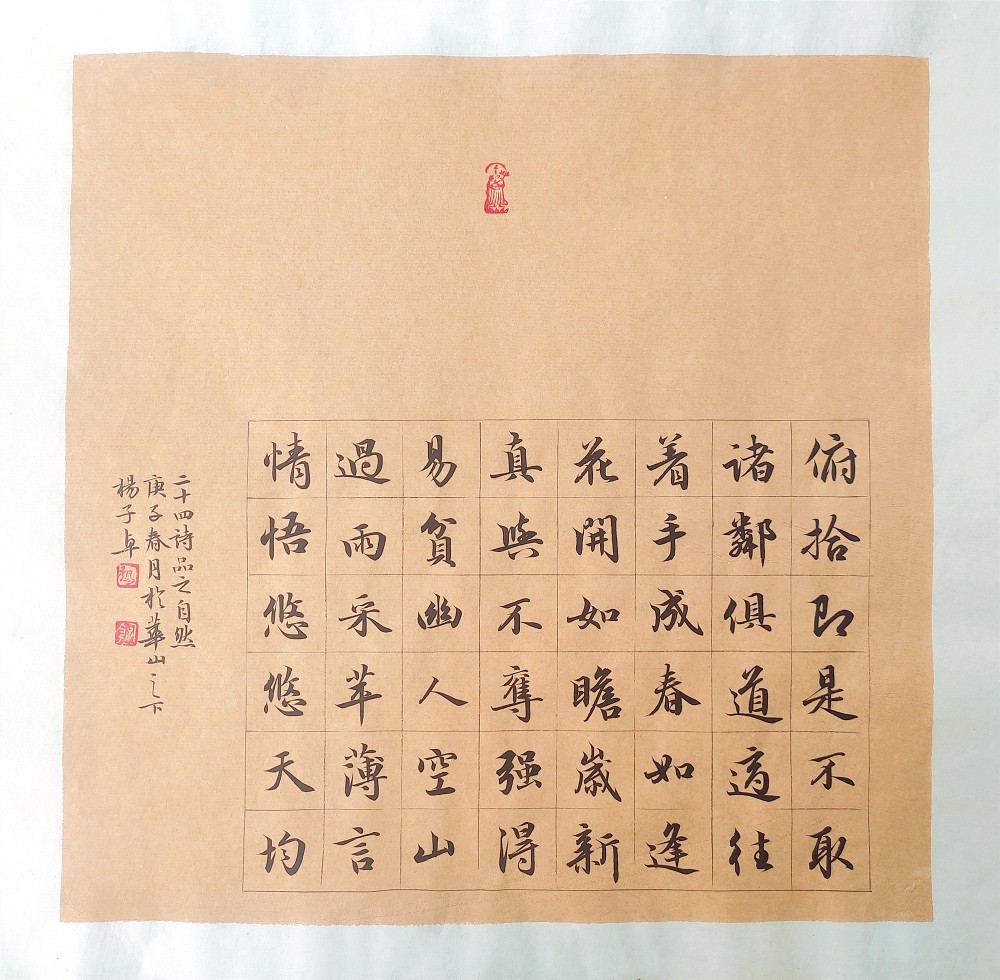 俯拾即是不取
诸鄰俱道適往
着手成春如逢
花開如瞻歲新
真與不奪强得
易貧幽人空山
過雨采苹薄言
情悟悠悠天均
二十四詩品之自然
庚子春月於華山之下
楊子卓